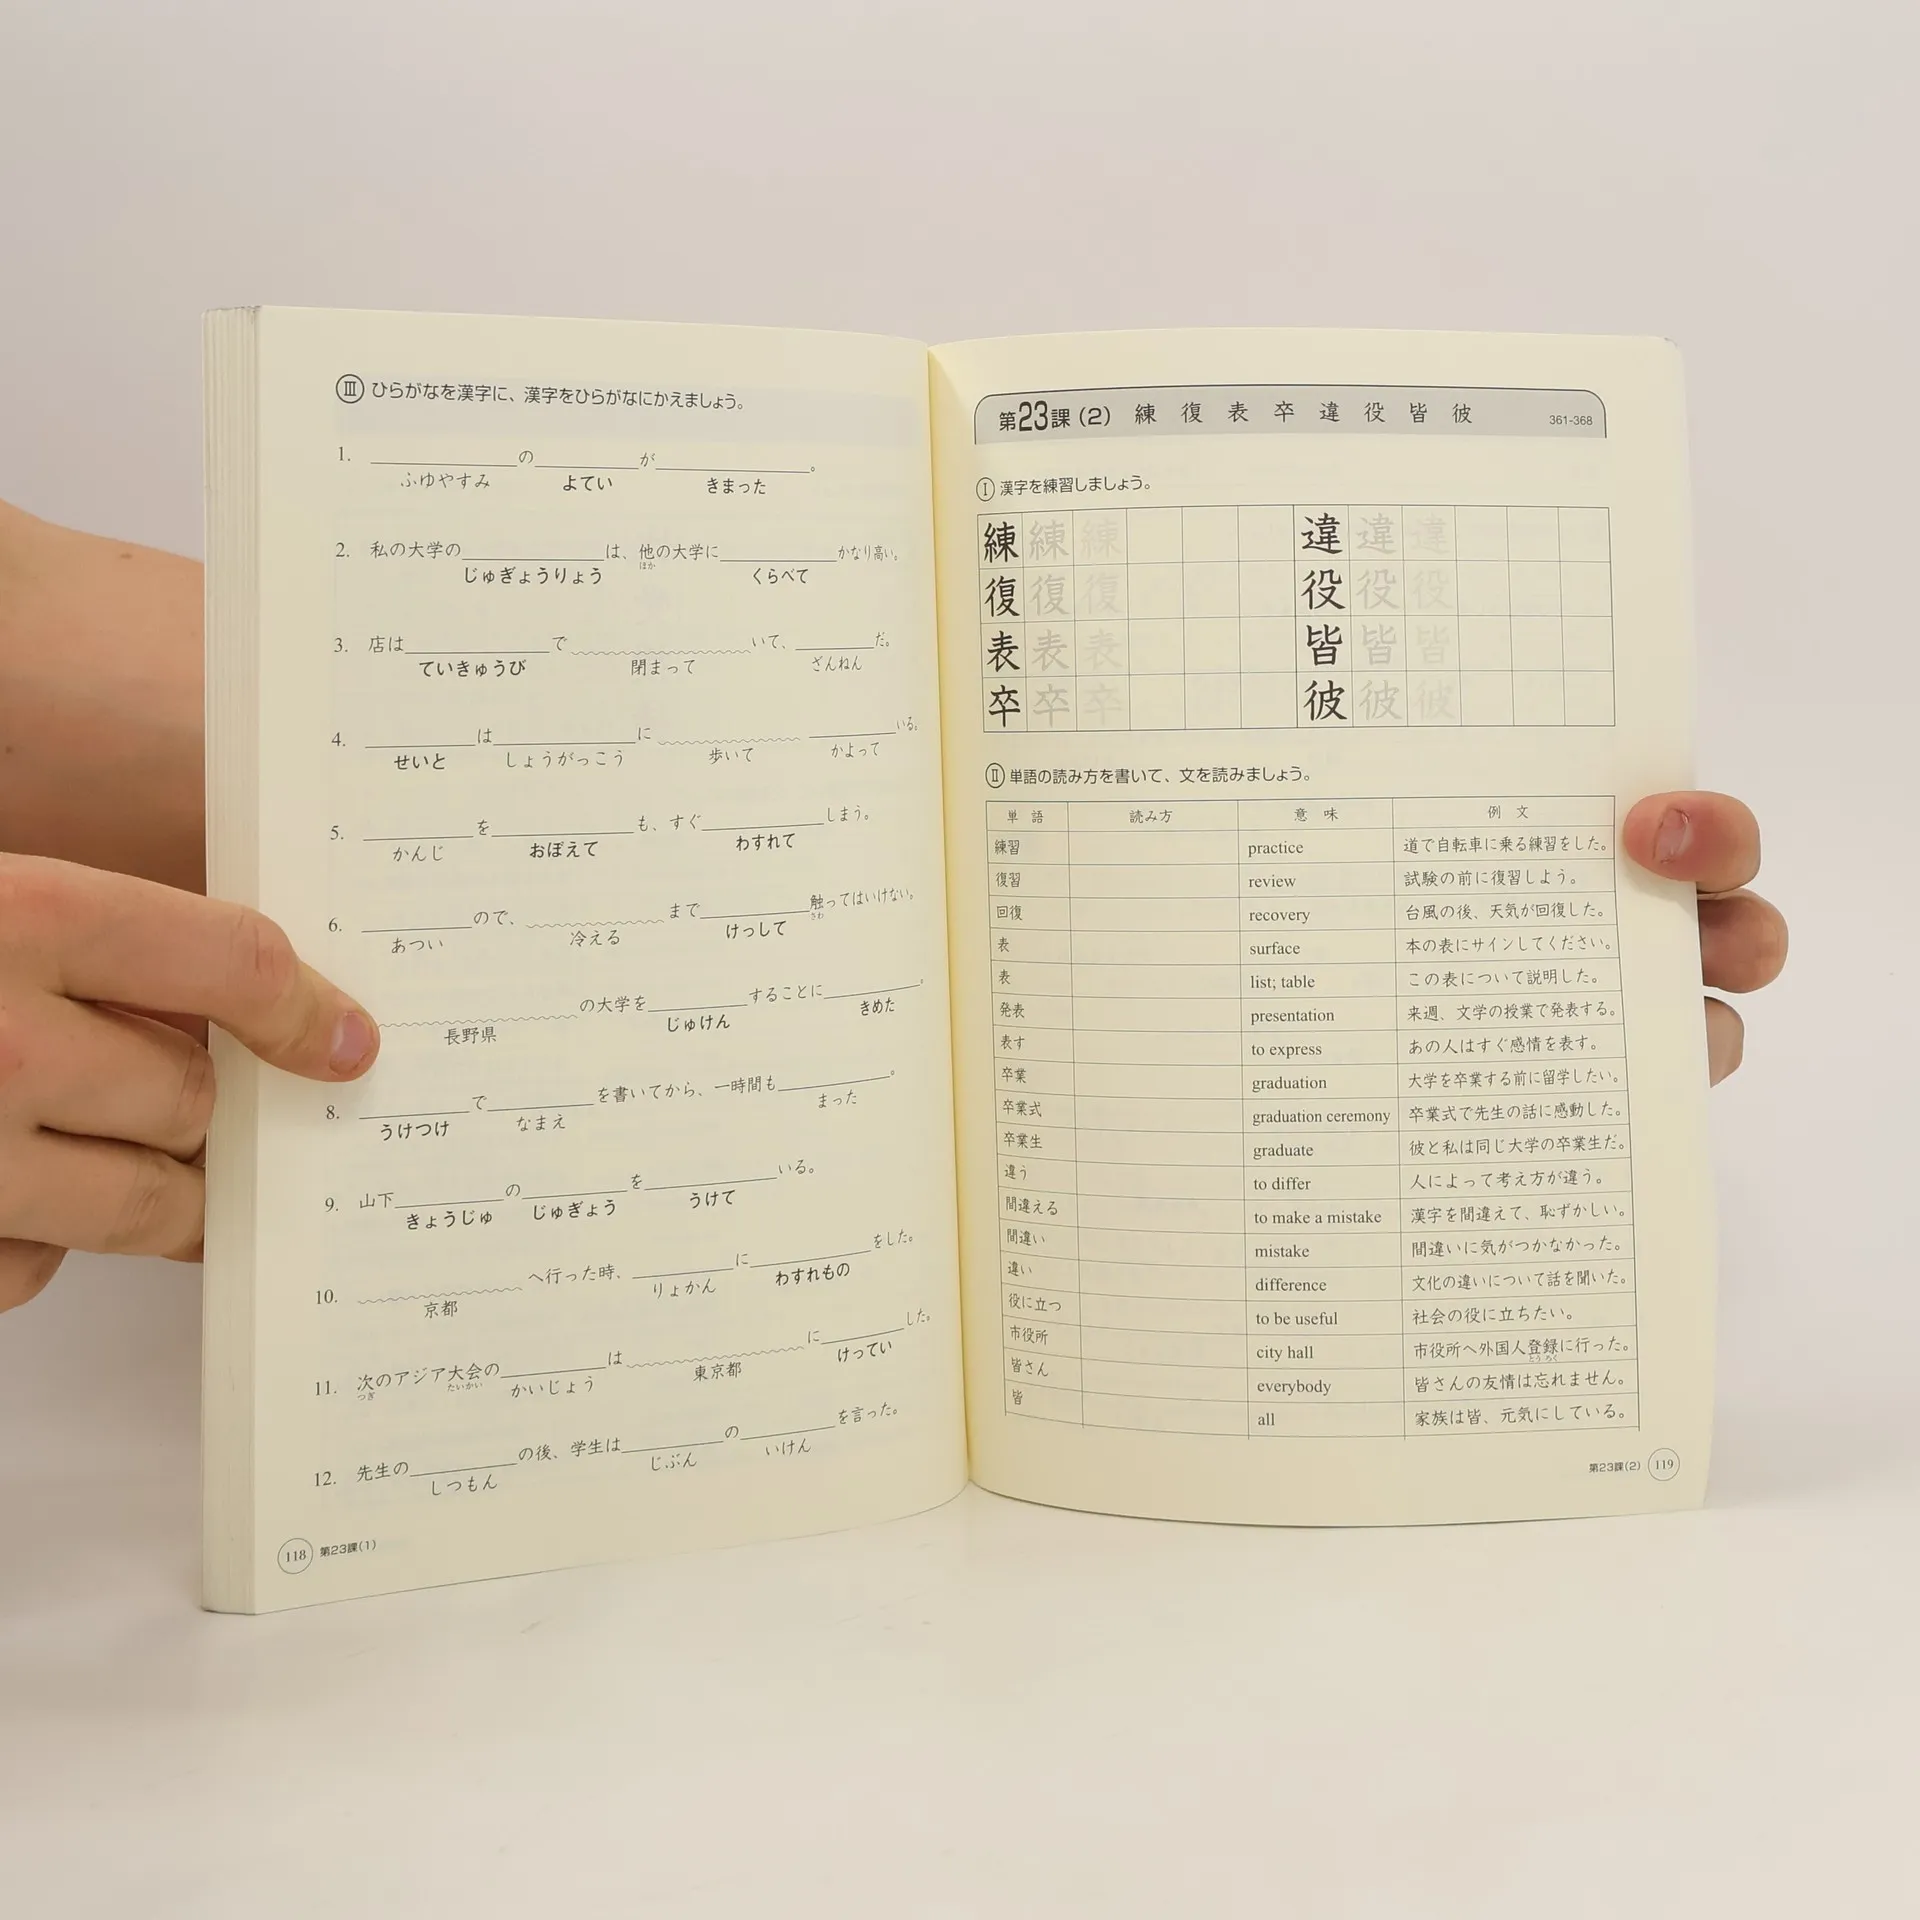 Ⅲ ひらがなを漢字に、漢字をひらがなにかえましょう。
1. ＿＿＿の＿＿＿が＿＿＿。
ふゆやすみ よてい きまった
2. 私の大学の＿＿＿は、他の大学に＿＿＿かなり高い。
じゅぎょうりょう ほか くらべて
3. 店は＿＿＿で＿＿＿いて、＿＿＿だ。
ていきゅうび 閉まって ざんねん
4. ＿＿＿は＿＿＿に＿＿＿ ＿＿＿いる。
せいと しょうがっこう 歩いて かよって
5. ＿＿＿を＿＿＿も、すぐ＿＿＿しまう。
かんじ おぼえて わすれて
6. ＿＿＿ので、＿＿＿まで＿＿＿触ってはいけない。
あつい 冷える けっして さわ
＿＿＿の大学を＿＿＿することに＿＿＿。
長野県 じゅけん きめた
8. ＿＿＿で＿＿＿を書いてから、一時間も＿＿＿。
うけつけ なまえ まった
9. 山下＿＿＿の＿＿＿を＿＿＿いる。
きょうじゅ じゅぎょう うけて
10. ＿＿＿へ行った時、＿＿＿に＿＿＿をした。
京都 りょかん わすれもの
11. 次のアジア大会の＿＿＿は＿＿＿に＿＿＿した。
つぎ たいかい かいじょう 東京都 けってい
12. 先生の＿＿＿の後、学生は＿＿＿の＿＿＿を言った。
しつもん じぶん いけん
118 第23課(1)
第23課(2) 練 復 表 卒 違 役 皆 彼 361-368
Ⅰ 漢字を練習しましょう。
練 練 練 違 違 違
復 復 復 役 役 役
表 表 表 皆 皆 皆
卒 卒 卒 彼 彼 彼
Ⅱ 単語の読み方を書いて、文を読みましょう。
単語 読み方 意味 例文
練習 practice 道で自転車に乗る練習をした。
復習 review 試験の前に復習しよう。
回復 recovery 台風の後、天気が回復した。
表 surface 本の表にサインしてください。
表 list; table この表について説明した。
発表 presentation 来週、文学の授業で発表する。
表す to express あの人はすぐ感情を表す。
卒業 graduation 大学を卒業する前に留学したい。
卒業式 graduation ceremony 卒業式で先生の話に感動した。
卒業生 graduate 彼と私は同じ大学の卒業生だ。
違う to differ 人によって考え方が違う。
間違える to make a mistake 漢字を間違えて、恥ずかしい。
間違い mistake 間違いに気がつかなかった。
違い difference 文化の違いについて話を聞いた。
役に立つ to be useful 社会の役に立ちたい。
市役所 city hall 市役所へ外国人登録に行った。
とうろく
皆さん everybody 皆さんの友情は忘れません。
皆 all 家族は皆、元気にしている。
第23課(2) 119